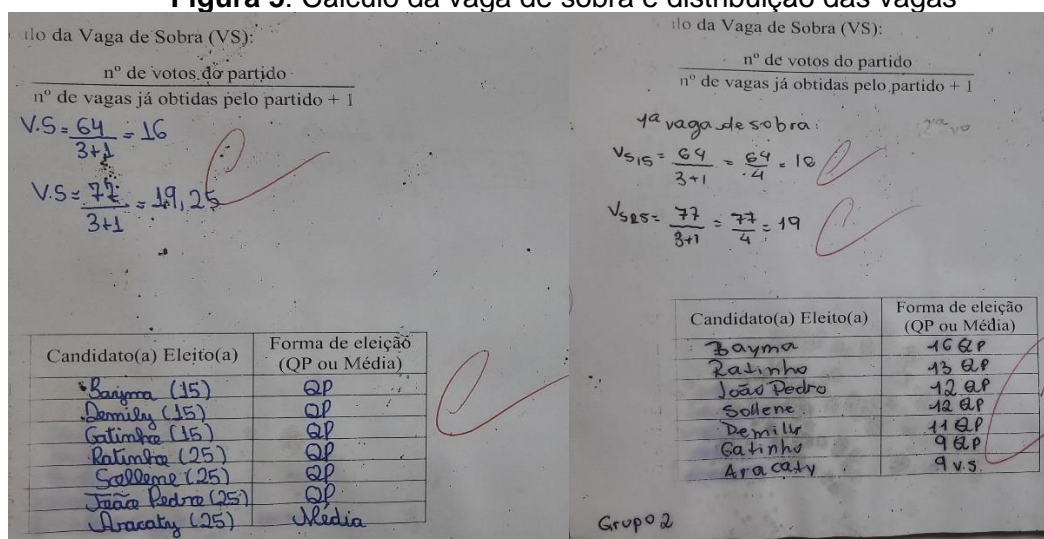 Figura 5: Cálculo da vaga de sobra e distribuição das vagas
ilo da Vaga de Sobra (VS):
nº de votos do partido
nº de vagas já obtidas pelo partido + 1
V.S = 64 = 16
3+1
V.S = 77 = 19,25
3+1
Candidato(a) Eleito(a) Forma de eleição (QP ou Média)
Bayma (15) QP
Demily (15) QP
Gatinho (15) QP
Ratinho (25) QP
Sollene (25) QP
João Pedro (25) QP
Aracaty (25) Média
ilo da Vaga de Sobra (VS):
nº de votos do partido
nº de vagas já obtidas pelo partido + 1
1ª vaga de sobra:
VS15 = 64 = 64 = 16
3+1 4
VS25 = 77 = 77 = 19
3+1 4
Candidato(a) Eleito(a) Forma de eleição (QP ou Média)
Bayma 16 QP
Ratinho 13 QP
João Pedro 12 QP
Sollene 12 QP
Demilly 11 QP
Gatinho 9 QP
Aracaty 9 v.s.
Grupo 2